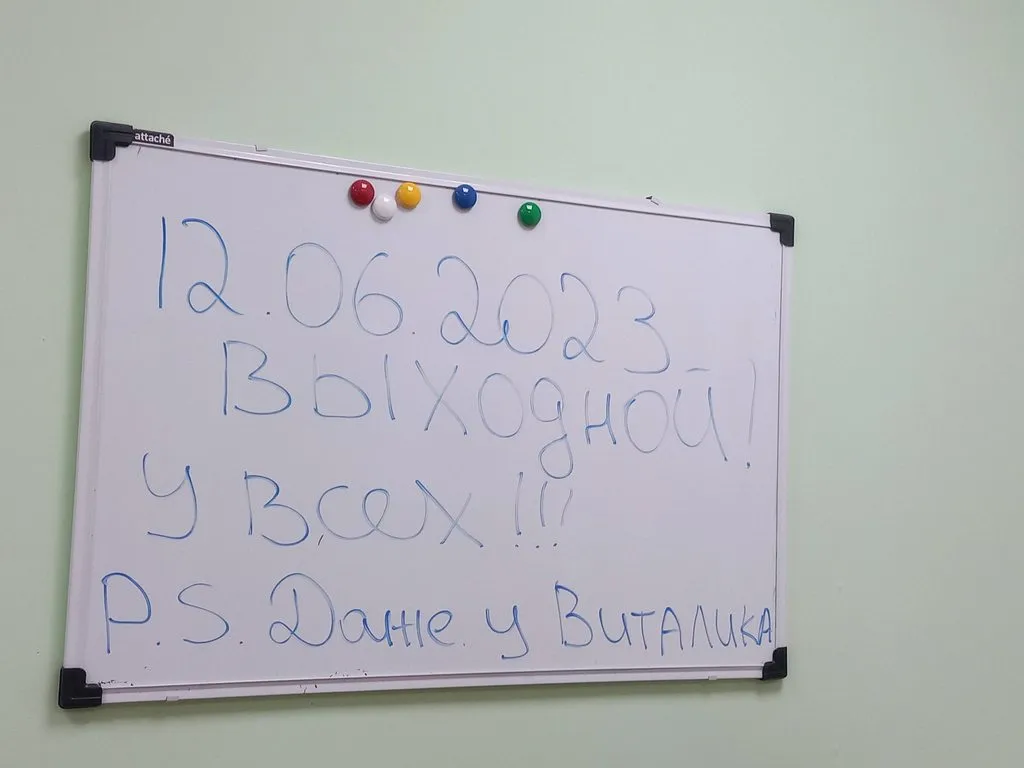 attaché
12.06.2023
Выходной!
У Всех!!!
P.S. Даже у Виталика